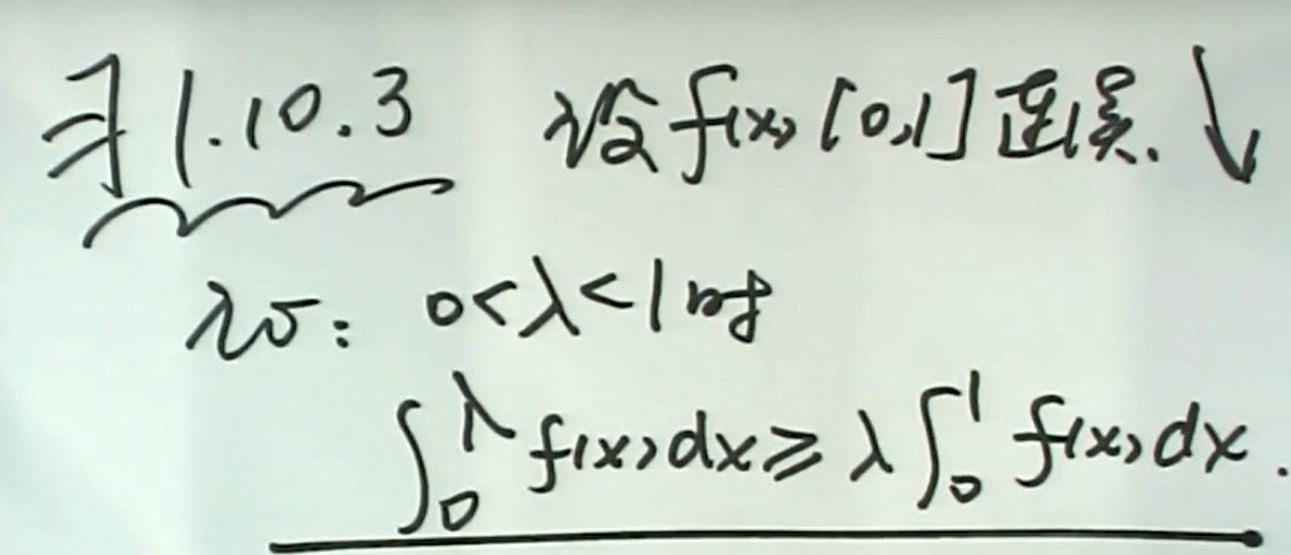 习1.10.3 设f(x)[0,1]连续.↓
证: 0<λ<1时
∫₀^λ f(x)dx ≥ λ∫₀¹ f(x)dx.